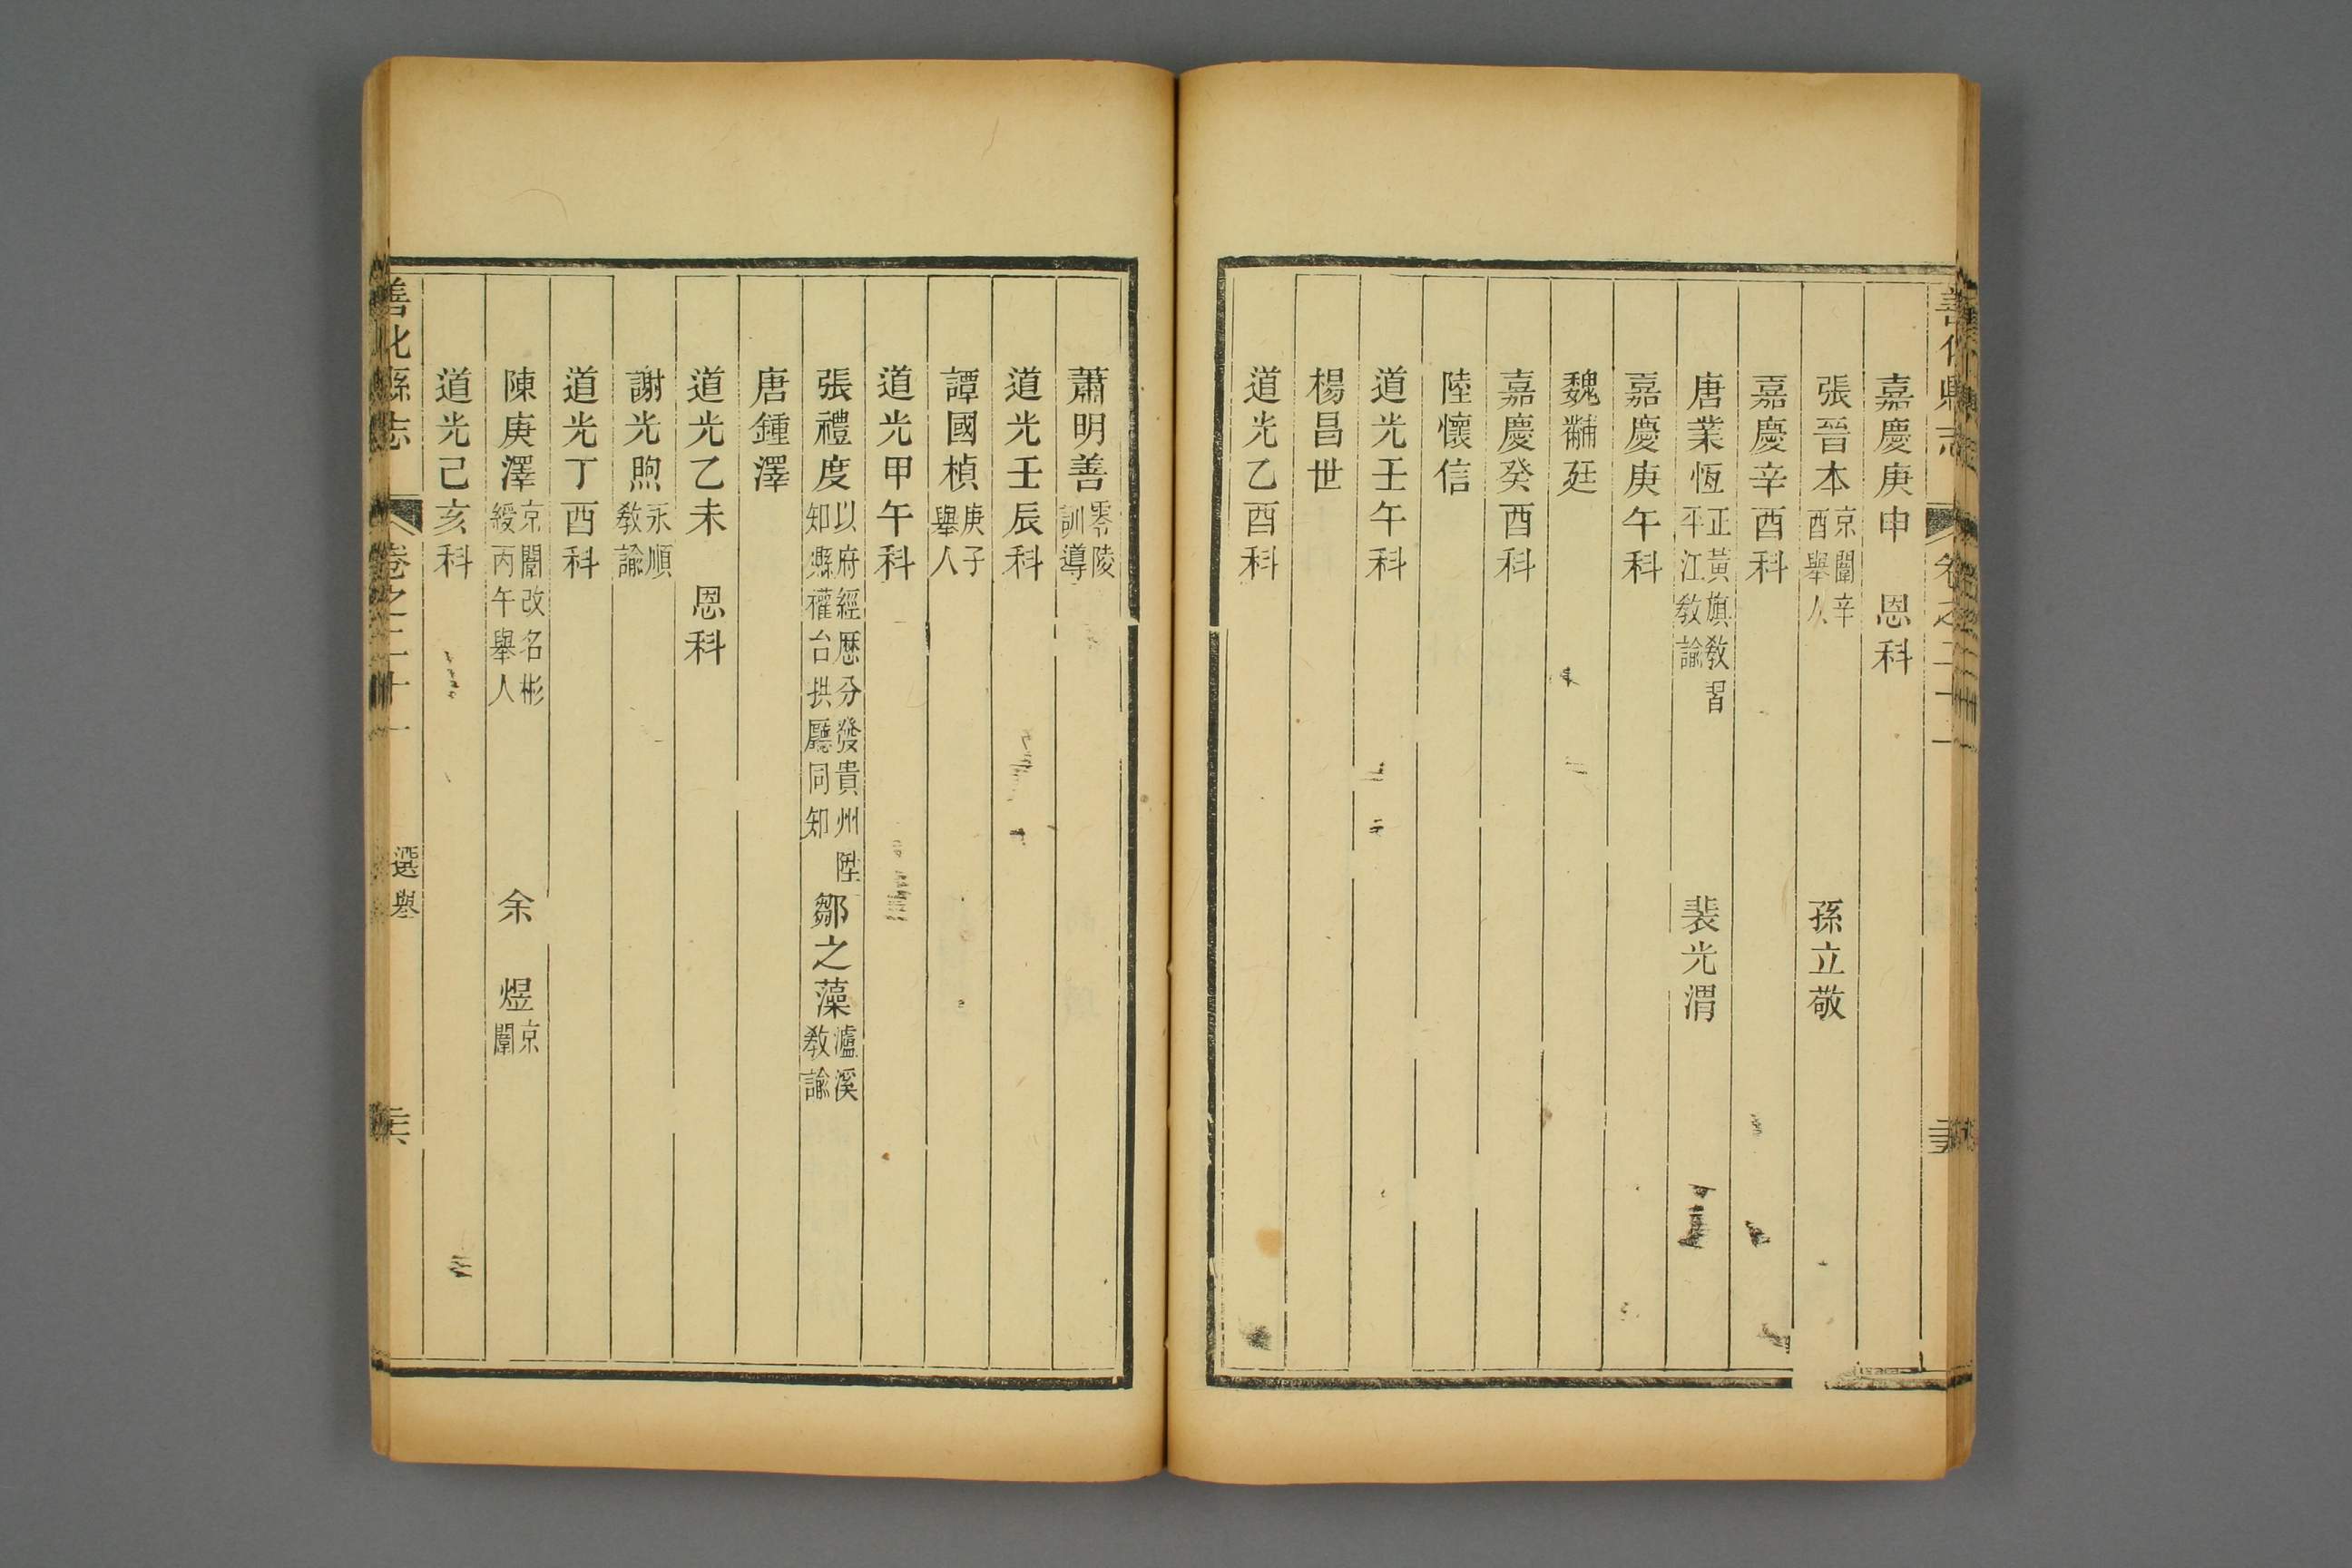 嘉慶庚申　恩科
張晉本京闈辛酉舉人　孫立敬
嘉慶辛酉科
唐業恆正黃旗教習平江教諭　裴光渭
嘉慶庚午科
魏黼廷
嘉慶癸酉科
陸懷信
道光壬午科
楊昌世
道光乙酉科
蕭明善零陵訓導
道光壬辰科
譚國楨庚子舉人
道光甲午科
張禮度以府經歷分發貴州陞知縣權台拱廳同知　鄒之藻瀘溪教諭
唐鍾澤
道光乙未　恩科
謝光煦永順教諭
道光丁酉科
陳庚澤京闈改名彬綬丙午舉人　余　煜京闈
道光己亥科
善化縣志　卷之二十一　選舉　二六